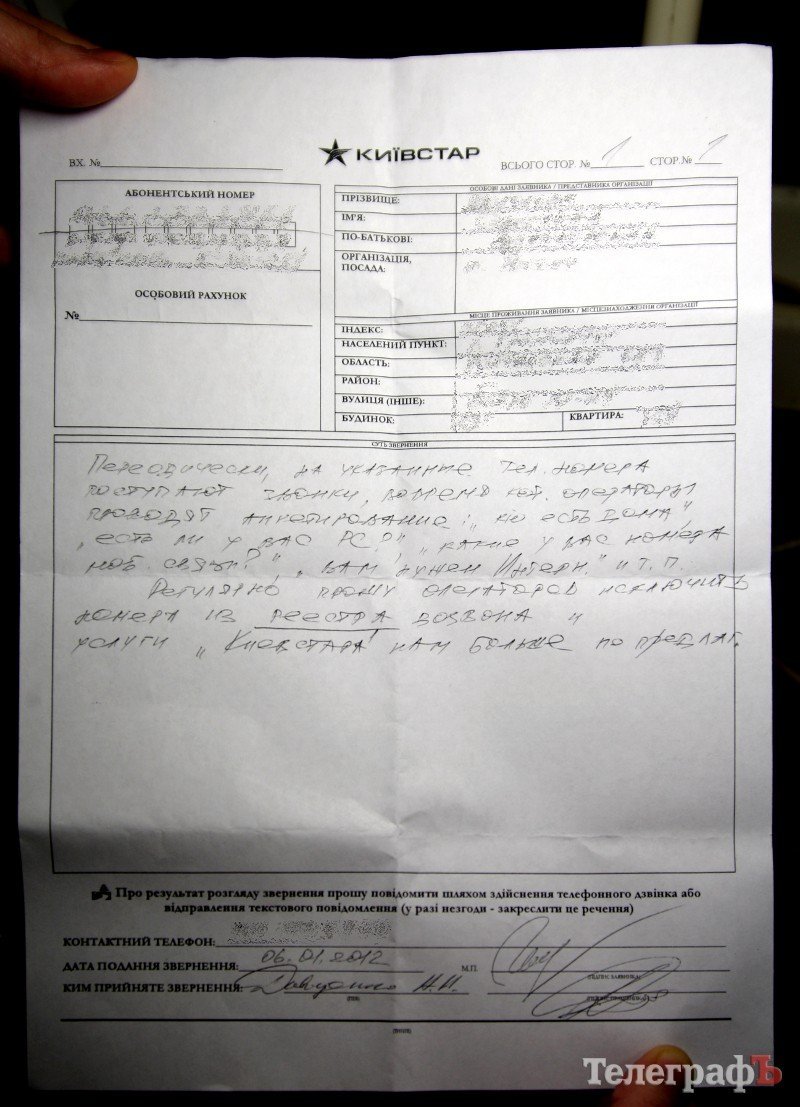 ВХ. №
КИЇВСТАР
ВСЬОГО СТОР. № 1 СТОР.№ 1
АБОНЕНТСЬКИЙ НОМЕР
ОСОБОВИЙ РАХУНОК
№
ОСОБОВІ ДАНІ ЗАЯВНИКА / ПРЕДСТАВНИКА ОРГАНІЗАЦІЇ
ПРІЗВИЩЕ:
ІМ'Я:
ПО-БАТЬКОВІ:
ОРГАНІЗАЦІЯ,
ПОСАДА:
МІСЦЕ ПРОЖИВАННЯ ЗАЯВНИКА / МІСЦЕЗНАХОДЖЕННЯ ОРГАНІЗАЦІЇ
ІНДЕКС:
НАСЕЛЕНИЙ ПУНКТ:
ОБЛАСТЬ:
РАЙОН:
ВУЛИЦЯ (ІНШЕ):
БУДИНОК: КВАРТИРА:
СУТЬ ЗВЕРНЕННЯ
Переодически, на указанные тел. номера
поступают звонки, кот. операторы
проводят анкетирование: „кто есть дома",
„есть ли у вас PC?" „какие у вас номера
моб. связи?", „вам нужен Интерн." и т.п.
Регулярно прошу операторов исключить
номера из реестра дозвона и
услуги „Киевстара" нам больше не предлаг.
Про результат розгляду звернення прошу повідомити шляхом здійснення телефонного дзвінка або
відправлення текстового повідомлення (у разі незгоди - закреслити це речення)
КОНТАКТНИЙ ТЕЛЕФОН:
ДАТА ПОДАННЯ ЗВЕРНЕННЯ: 06.01.2012 М.П.
(ПІДПИС ЗАЯВНИКА)
КИМ ПРИЙНЯТЕ ЗВЕРНЕННЯ:
(ПІБ)
ТелеграфЪ